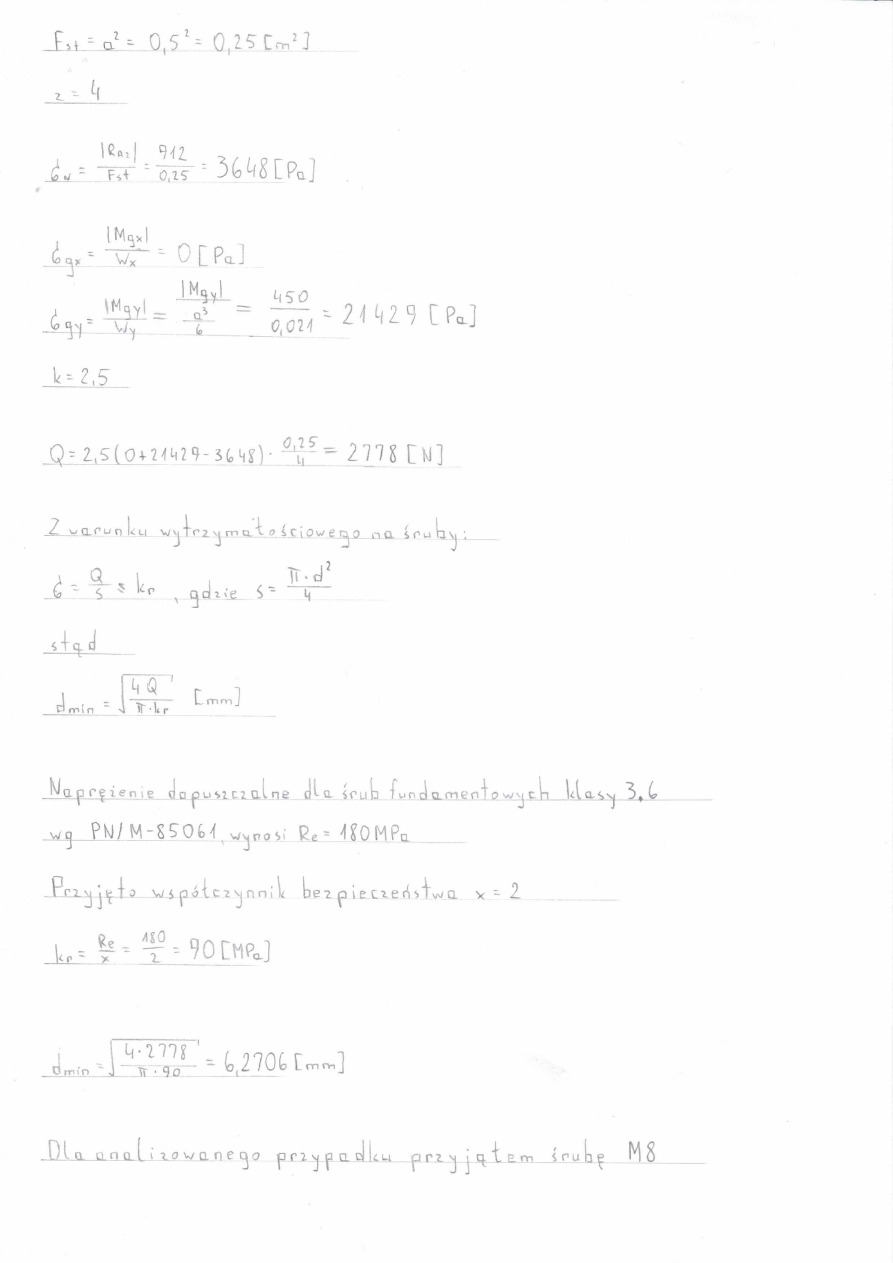 Fst = a² = 0,5² = 0,25 [m²]
z = 4
σN = |Raz|/Fst = 912/0,25 = 3648 [Pa]
σgx = |Mgx|/Wx = 0 [Pa]
σgy = |Mgy|/Wy = |Mgy|/(a³/6) = 450/0,021 = 21429 [Pa]
k = 2,5
Q = 2,5(0+21429-3648)·0,25/4 = 2778 [N]
Z warunku wytrzymałościowego na śruby:
σ = Q/s ≤ kr, gdzie s = π·d²/4
stąd
dmin = √(4Q/π·kr) [mm]
Naprężenie dopuszczalne dla śrub fundamentowych klasy 3.6
wg PN/M-85061, wynosi Re = 180MPa
Przyjęto współczynnik bezpieczeństwa x = 2
kr = Re/x = 180/2 = 90 [MPa]
dmin = √(4·2778/π·90) = 6,2706 [mm]
Dla analizowanego przypadku przyjąłem śrubę M8